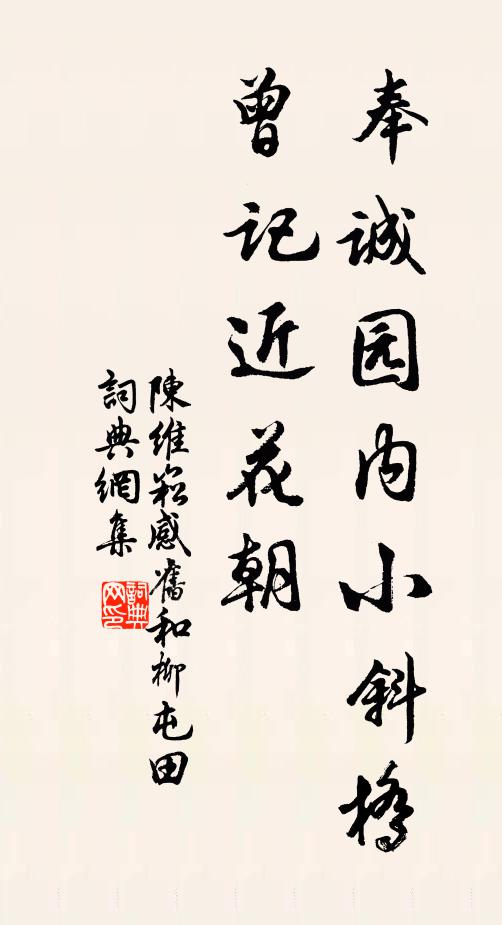 奉诚园内小斜橋
曾记近花朝
陳維崧感舊和柳屯田
詞典網集
詞典网印